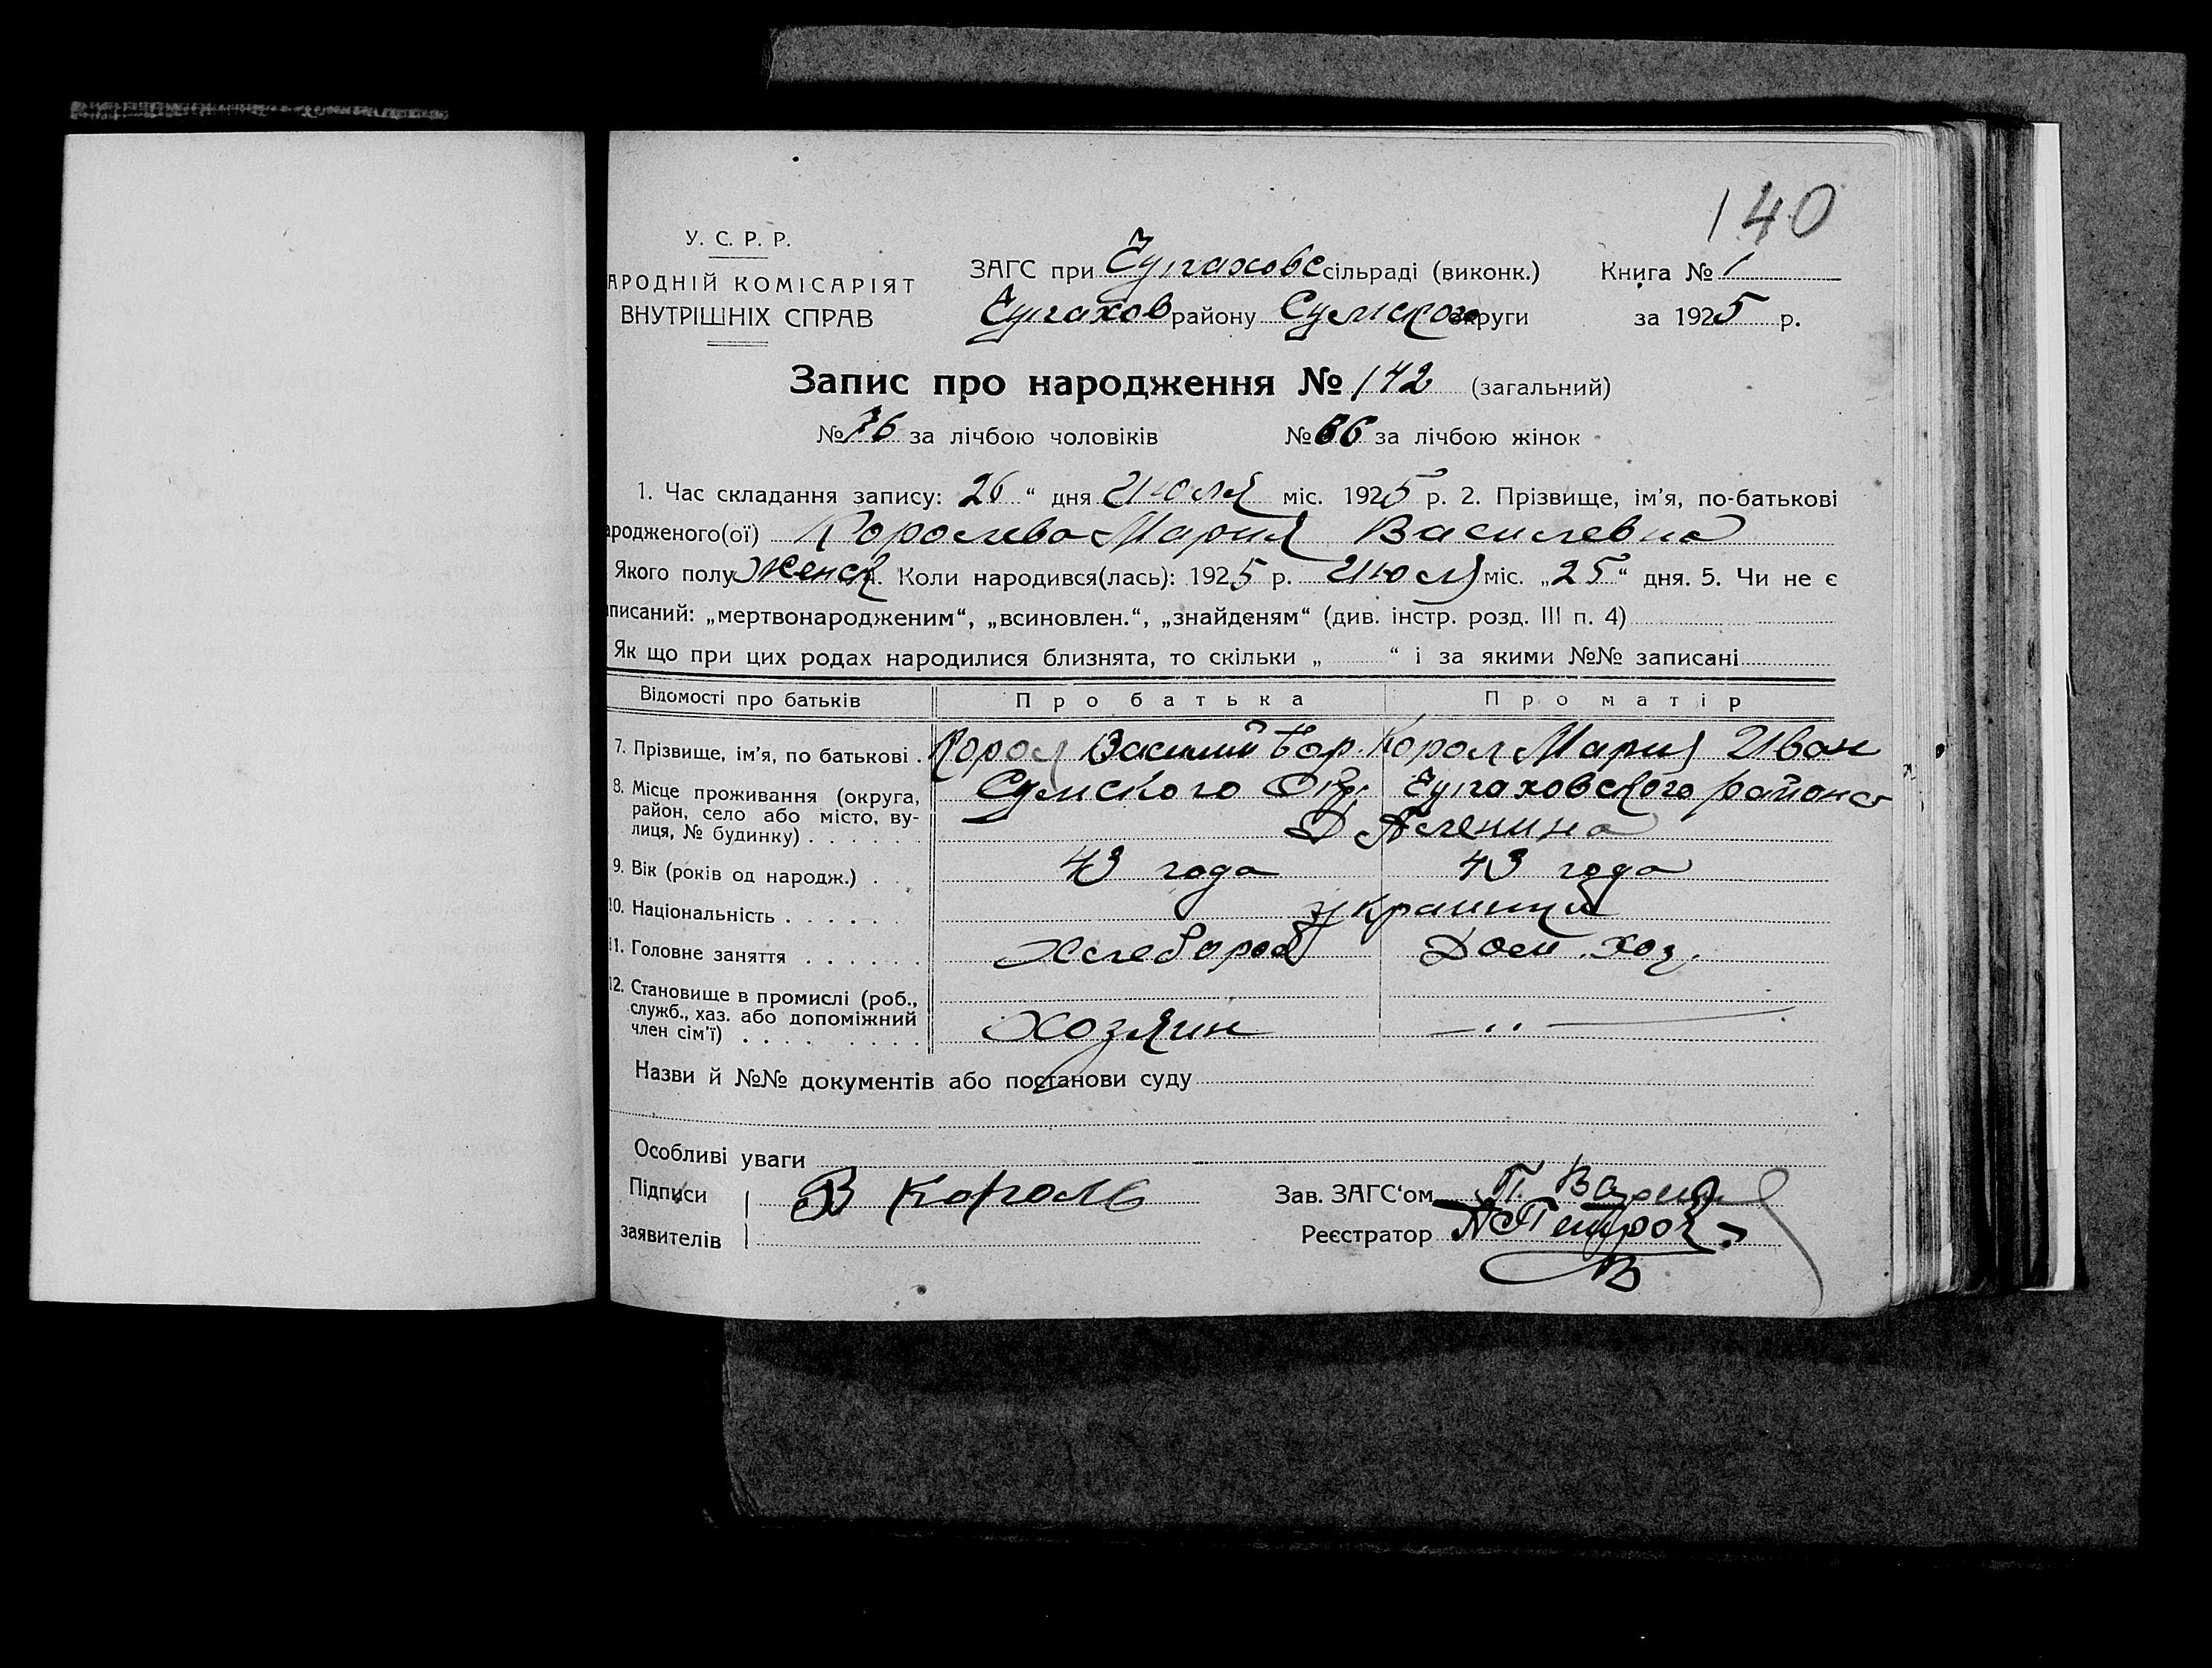 140
У. С. Р. Р.
АРОДНІЙ КОМІСАРІЯТ
ВНУТРІШНІХ СПРАВ
ЗАГС при сільраді (виконк.)
району Сумского округи
Книга № 1
за 1925 р.
Запис про народження № 142 (загальний)
№ 76 за лічбою чоловіків № 66 за лічбою жінок
1. Час складання запису: 26 “ дня Июля міс. 1925 р. 2. Прізвище, ім’я, по-батькові
ародженого(ої) Королева Мария Василевна
Якого полу Женск 4. Коли народився(лась): 1925 р. Июля міс. „25“ дня. 5. Чи не є
писаний: „мертвонародженим“, „всиновлен.“, „знайденям“ (див. інстр. розд. III п. 4)
Як що при цих родах народилися близнята, то скільки „ “ і за якими №№ записані
Відомості про батьків Про батька Про матір
7. Прізвище, ім’я, по батькові . Корол Василий Корол Мария Иван
8. Місце проживання (округа, район, село або місто, вулиця, № будинку) Сумского Окр. района
9. Вік (років од народж.) . . 43 года 43 года
10. Національність . . . . . украинци
11. Головне заняття . . . . . . Хлебороб Дом. хоз.
12. Становище в промислі (роб.,
служб., хаз. або допоміжний
член сім’ї) . . . . . . . . Хозяин — „ —
Назви й №№ документів або постанови суду
Особливі уваги
Підписи В Король Зав. ЗАГС‘ом
заявителів Реєстратор